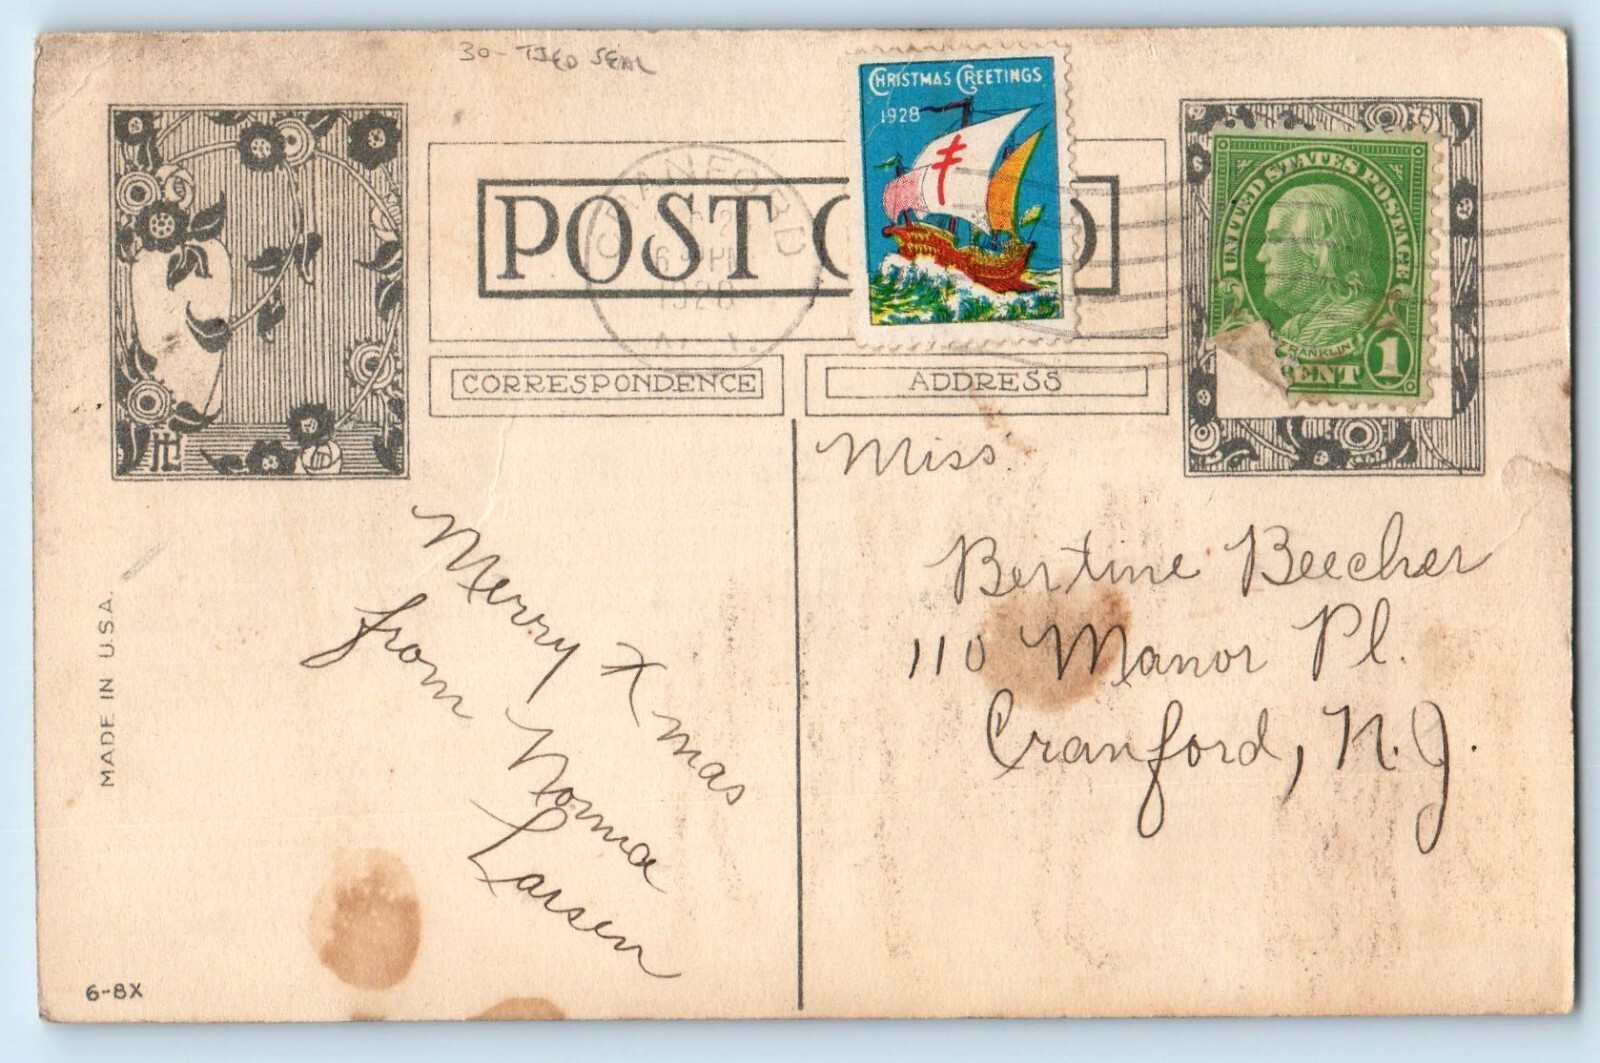 30- TIED SEAL
CHRISTMAS GREETINGS
1928
UNITED STATES POSTAGE
FRANKLIN
CENT 1
CRANFORD
6 PM
1928
N. J.
POST C D
CORRESPONDENCE
ADDRESS
HL
Merry Xmas
from Norma
Larsen
Miss
Bertine Beecher
110 Manor Pl.
Cranford, N.J.
MADE IN U.S.A.
6-8X